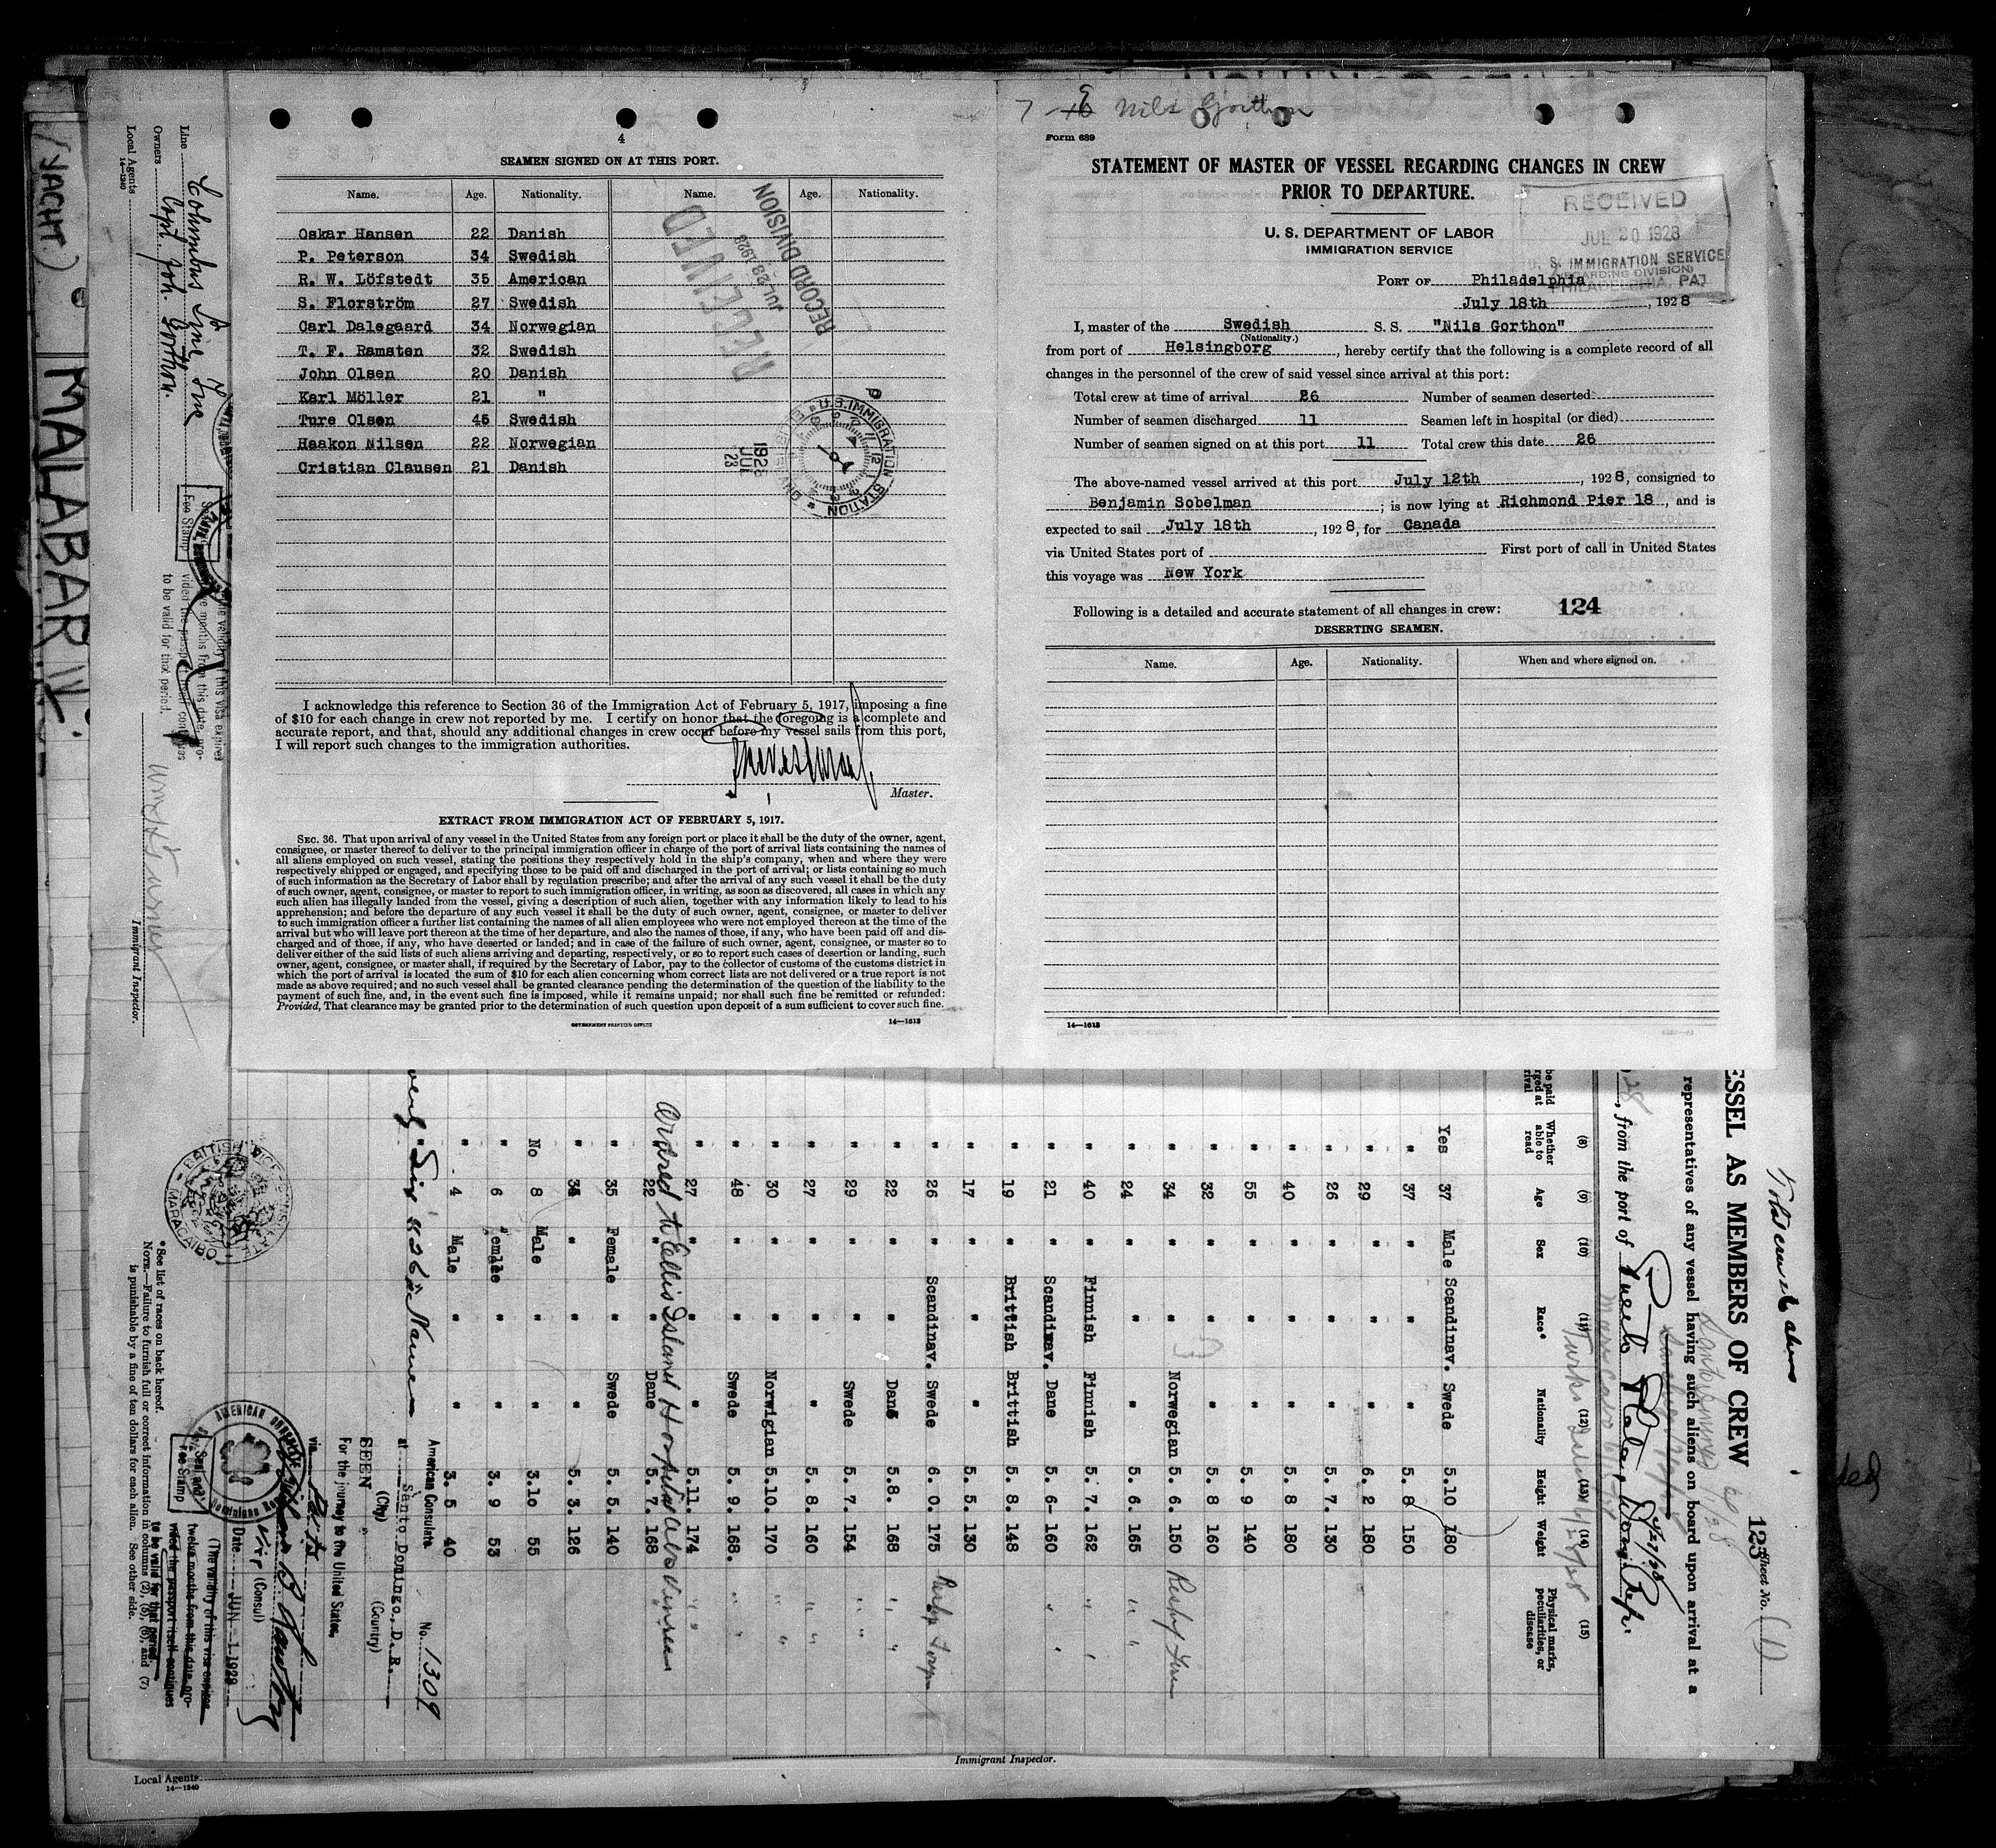 (YACHT)
MALABAR IV.
Line Columbus Line Inc
Owners Capt. Joh. Gorthon.
Local Agents
14—1240
Immigrant Inspector.
4
SEAMEN SIGNED ON AT THIS PORT.
Name. Age. Nationality. Name. Age. Nationality.
Oskar Hansen 22 Danish
P. Peterson 34 Swedish
R. W. Löfstedt 35 American
S. Florström 27 Swedish
Carl Dalegaard 34 Norwegian
T. F. Ramsten 32 Swedish
John Olsen 20 Danish
Karl Möller 21 "
Ture Olsen 45 Swedish
Haakon Nilsen 22 Norwegian
Cristian Clausen 21 Danish
RECEIVED
JUL 28 1928
RECORD DIVISION
U.S. IMMIGRATION STATION
1928
JUL
23
I acknowledge this reference to Section 36 of the Immigration Act of February 5, 1917, imposing a fine
of $10 for each change in crew not reported by me. I certify on honor that the foregoing is a complete and
accurate report, and that, should any additional changes in crew occur before my vessel sails from this port,
I will report such changes to the immigration authorities.
Master.
EXTRACT FROM IMMIGRATION ACT OF FEBRUARY 5, 1917.
SEC. 36. That upon arrival of any vessel in the United States from any foreign port or place it shall be the duty of the owner, agent,
consignee, or master thereof to deliver to the principal immigration officer in charge of the port of arrival lists containing the names of
all aliens employed on such vessel, stating the positions they respectively hold in the ship's company, when and where they were
respectively shipped or engaged, and specifying those to be paid off and discharged in the port of arrival; or lists containing so much
of such information as the Secretary of Labor shall by regulation prescribe; and after the arrival of any such vessel it shall be the duty
of such owner, agent, consignee, or master to report to such immigration officer, in writing, as soon as discovered, all cases in which any
such alien has illegally landed from the vessel, giving a description of such alien, together with any information likely to lead to his
apprehension; and before the departure of any such vessel it shall be the duty of such owner, agent, consignee, or master to deliver
to such immigration officer a further list containing the names of all alien employees who were not employed thereon at the time of the
arrival but who will leave port thereon at the time of her departure, and also the names of those, if any, who have been paid off and dis-
charged and of those, if any, who have deserted or landed; and in case of the failure of such owner, agent, consignee, or master so to
deliver either of the said lists of such aliens arriving and departing, respectively, or so to report such cases of desertion or landing, such
owner, agent, consignee, or master shall, if required by the Secretary of Labor, pay to the collector of customs of the customs district in
which the port of arrival is located the sum of $10 for each alien concerning whom correct lists are not delivered or a true report is not
made as above required; and no such vessel shall be granted clearance pending the determination of the question of the liability to the
payment of such fine, and, in the event such fine is imposed, while it remains unpaid; nor shall such fine be remitted or refunded:
Provided, That clearance may be granted prior to the determination of such question upon deposit of a sum sufficient to cover such fine.
GOVERNMENT PRINTING OFFICE 14—1613
Nils Gorthon
Form 689
STATEMENT OF MASTER OF VESSEL REGARDING CHANGES IN CREW
PRIOR TO DEPARTURE.
U. S. DEPARTMENT OF LABOR
IMMIGRATION SERVICE
RECEIVED
JUL 20 1928
U. S. IMMIGRATION SERVICE
PHILADELPHIA, PA.
PORT OF Philadelphia
July 18th, 1928
I, master of the Swedish S. S. "Nils Gorthon"
(Nationality.)
from port of Helsingborg, hereby certify that the following is a complete record of all
changes in the personnel of the crew of said vessel since arrival at this port:
Total crew at time of arrival 26 Number of seamen deserted
Number of seamen discharged 11 Seamen left in hospital (or died)
Number of seamen signed on at this port 11 Total crew this date 26
The above-named vessel arrived at this port July 12th, 1928, consigned to
Benjamin Sobelman; is now lying at Richmond Pier 18, and is
expected to sail July 18th, 1928, for Canada
via United States port of First port of call in United States
this voyage was New York
Following is a detailed and accurate statement of all changes in crew: 124
DESERTING SEAMEN.
Name. Age. Nationality. When and where signed on.
14—1613
ESSEL AS MEMBERS OF CREW
Sheet No. (1)
123
representatives of any vessel having such aliens on board upon arrival at a
, from the port of Puerto Plata, Dom. Rep.
(8) (9) (10) (11) (12) (13) (14) (15)
Whether able to read Age Sex Race* Nationality Height Weight Physical marks, peculiarities, or disease
Yes 37 Male Scandinav. Swede 5.10 180
" 37 " " " 5. 8 150
" 29 " " " 6. 2 180
" 26 " " " 5. 7. 130
" 40 " " " 5. 8 180
" 55 " " " 5. 9 140
" 32 " " " 5. 8 160
" 34 " " Norwegian 5. 6. 150
" 24 " " " 5. 6. 165
" 40 " Finnish Finnish 5. 7. 162
" 21 " Scandinav. Dane 5. 6- 160
" 19 " Brittish Brittish 5. 8. 148
" 17 " " " 5. 5. 130
" 26 " Scandinav. Swede 6. 0. 175
" 22 " " Dane 5.8. 168
" 29 " " Swede 5. 7. 154
" 27 " " " 5. 8. 160
" 30 " " Norwigian 5.10. 170
" 48 " " Swede 5. 9. 168.
" 27 " " " 5.11. 174
22 " " Dane 5. 7. 168
Ordered to Ellis Island Hospital
" 35 Female " Swede 5. 5. 140
" 34 " " " 5. 3. 126
No 8 Male " " 3.10 55
" 6 Female " " 3. 9 53
" 4 Male " " 3. 5 40
American Consulate No. 1309
at Santo Domingo, D. R.
(City) (Country)
SEEN
For the journey to the United States,
via
(Consul)
Date JUN - 1 1928
(The validity of this visa expires
twelve months from this date pro-
vided the passport itself continues
to be valid for that period.
Fee Stamp
BRITISH VICE CONSULATE MARACAIBO
*See list of races on back hereof.
NOTE.—Failure to furnish full or correct information in columns (2), (5), (6), and (7)
is punishable by a fine of ten dollars for each alien. See other side.
Immigrant Inspector.
Local Agents
14—1240